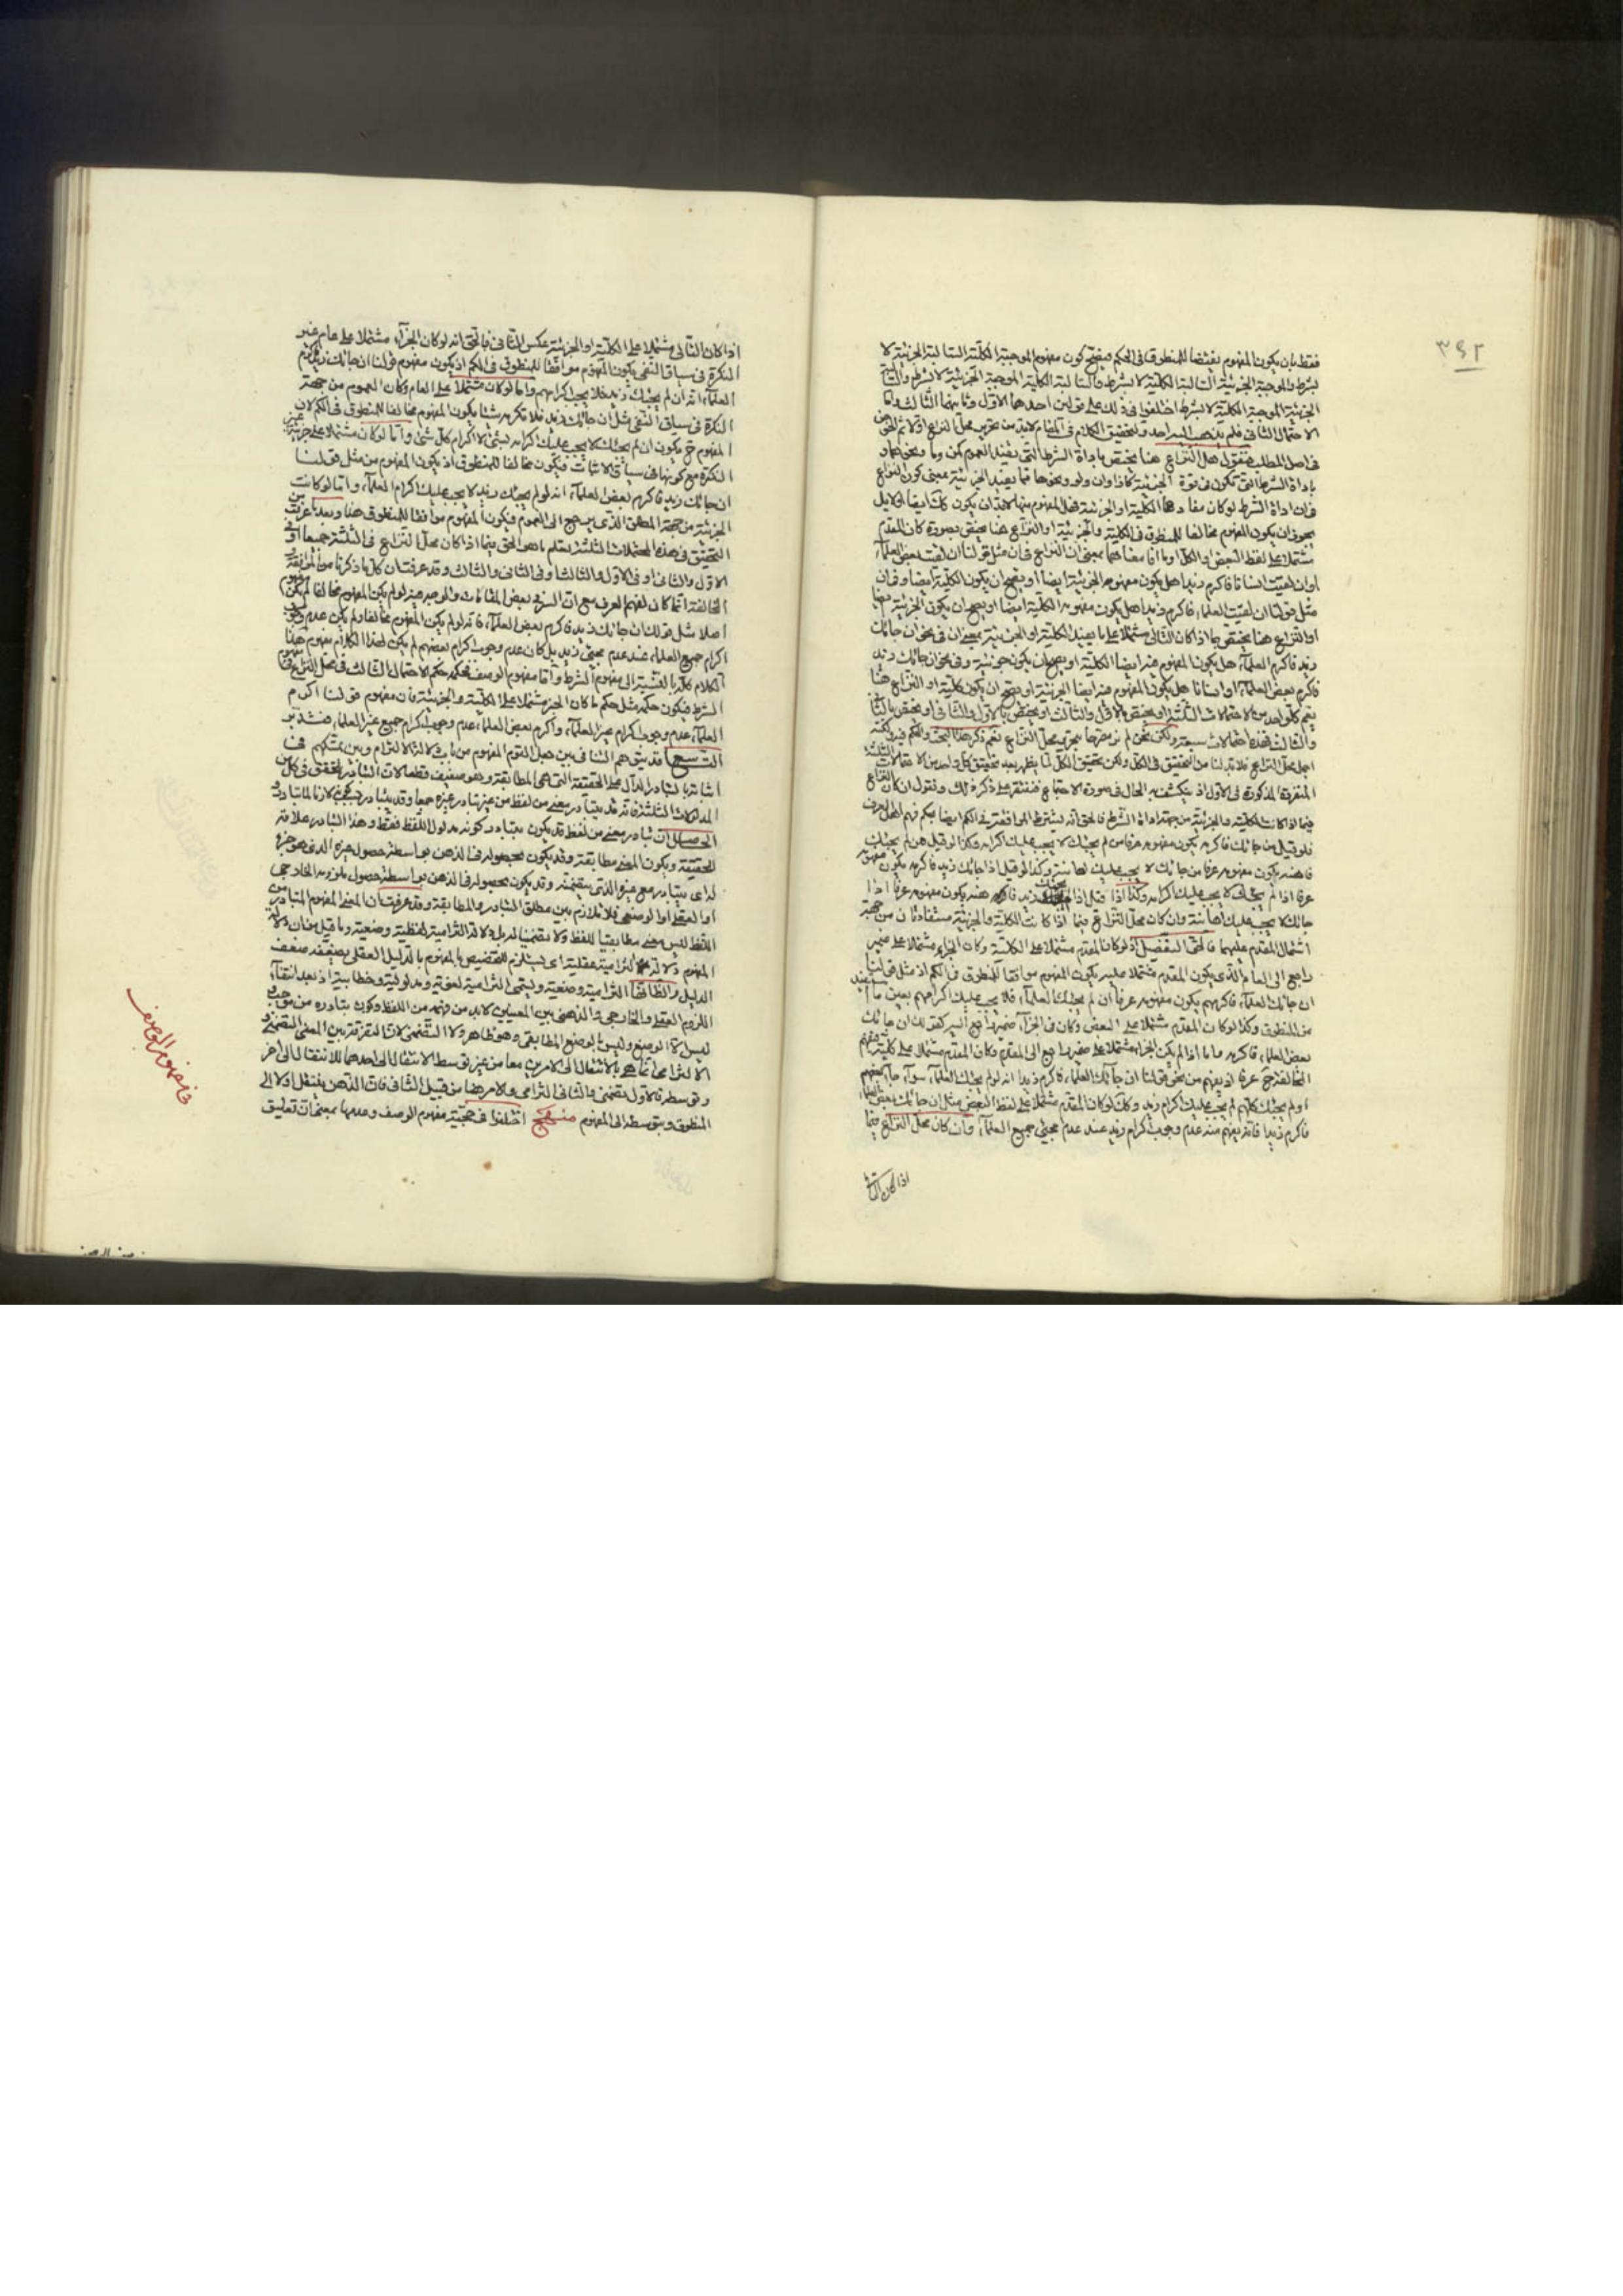 ٣٩٢
فقط بان يكون المفهوم نقيضا للمنطوق في الحكم فيصح كون مفهوم الموجبة الكلية السالبة الجزئية لا
بشرط والموجبة الجزئية السالبة الكلية لا بشرط والسالبة الكلية الموجبة الجزئية لا بشرط والسالبة
الجزئية الموجبة الكلية لا بشرط اختلفوا في ذلك على قولين احدهما الاول وثانيهما الثالث واما
الاحتمال الثاني فلم يذهب اليه احد وتحقيق الكلام في المقام لابد من تحرير محل النزاع اولا ثم
في اصل المطلب فنقول هل النزاع هنا يختص باداة الشرط التي يفيد العموم كمن وما ونحوهما او
باداة الشرط التي تكون في قوة الجزئية كاذا وان ولو ونحوها مما يفيد الجزئية بمعنى كون النزاع
فان اداة الشرط لو كان مفادها الكلية او الجزئية فهل المفهوم منها لابد ان يكون كك ايضا ام لا بل
يجوز ان يكون المفهوم مخالفا للمنطوق في الكلية والجزئية او النزاع هنا يختص بصورة كان المقدم
مشتملا على لفظ البعض او الكل او ما افاد معناهما بمعنى ان النزاع في ان مثل قولنا ان لقيت بعض العلماء
او ان لقيت انسانا فاكرم زيدا هل يكون مفهومه الجزئية ايضا او يصح ان يكون الكلية ايضا وفي ان
مثل قولنا ان لقيت العلماء فاكرم زيدا هل يكون مفهومه الكلية ايضا او يصح ان يكون الجزئية ايضا
او النزاع هنا يختص بما اذا كان التالي مشتملا على ما يفيد الكلية او الجزئية بمعنى ان في نحو ان جائك
زيد فاكرم العلماء هل يكون المفهوم منه ايضا الكلية او يصح ان يكون جزئية وفي نحو ان جائك زيد
فاكرم بعض العلماء او انسانا هل يكون المفهوم منه ايضا الجزئية او يصح ان يكون كلية او النزاع هنا
يعم كل واحد من الاحتمالات الثلثة او يختص بالاول والثالث او يختص بالاول والثاني او يختص بالثاني
والثالث فهذه احتمالات سبعة ولكن نحن لم نر مصرحا بتحرير محل النزاع نعم ذكر هذا البحث والحكم فيه ولكنه
اجمل محل النزاع فلابد لنا من التحقيق في الكل ولكن تحقيق الكل لما يظهر بعد تحقيق كل واحد من الاحتمالات الثلثة
المنفردة المذكورة في الاول اذ ينكشف به الحال في صورة الاجتماع فنقتصر على ذكر ذلك ونقول ان كان النزاع
فيما اذا كانت الكلية والجزئية من جهة اداة الشرط فالحق انه يشترط الموافقة في الكم ايضا بحكم فهم اهل العرف
فلو قيل من جائك فاكرمه يكون مفهومه عرفا من لم يجئك لا يجب عليك اكرامه وكذا لو قيل من لم يجئك
فاهنه يكون مفهومه عرفا من جائك لا يجب عليك اهانته وكذا لو قيل اذا جائك زيد فاكرمه يكون مفهومه
عرفا اذا لم يجئك لا يجب عليك اكرامه وكذا اذا قيل اذا لم يجئك زيد فاهنه يكون مفهومه عرفا اذا
جائك لا يجب عليك اهانته وان كان محل النزاع فيما اذا كانت الكلية والجزئية مستفادتان من جهة
اشتمال المقدم عليهما فالحق التفصيل اذ لو كان المقدم مشتملا على الكلية وكان الجزاء مشتملا على ضمير
راجع الى العام الذي يكون المقدم مشتملا عليه يكون المفهوم موافقا للمنطوق في الكم اذ مثل قولنا
ان جائك العلماء فاكرمهم يكون مفهومه عرفا ان لم يجئك العلماء فلا يجب عليك اكرامهم بعين ما
من المنطوق وكذا لو كان المقدم مشتملا على البعض وكان في الجزاء ضمير راجع اليه كقولك ان جائك
بعض العلماء فاكرمه واما اذا لم يكن الجزاء مشتملا على ضمير راجع الى المقدم وكان المقدم مشتملا على كلية يفهم
المخالفة ح عرفا اذ يفهم من نحو قولنا ان جائك العلماء فاكرم زيدا انه لو لم يجئك العلماء سواء جاء بعضهم
او لم يجئك كلهم لم يجب عليك اكرام زيد وكك لو كان المقدم مشتملا على لفظ البعض مثل ان جائك بعض العلماء
فاكرم زيدا فانه يفهم منه عدم وجوب اكرام زيد عند عدم مجئ جميع العلماء وان كان محل النزاع فيما
اذا كان التالي
اذا كان التالي مشتملا على الكلية او الجزئية عكس الثاني فالحق انه لو كان الجزاء مشتملا على عام غير
النكرة في سياق النفي يكون المفهوم موافقا للمنطوق في الكم اذ يكون مفهوم قولنا ان جائك زيد فاكرم
العلماء انه ان لم يجئك زيد فلا يجب اكرامهم واما لو كان مشتملا على العام وكان العموم من جهة
النكرة في سياق النفي مثل ان جائك زيد فلا تكرمه شيئا يكون المفهوم مخالفا للمنطوق في الكم لان
المفهوم ح يكون ان لم يجئك لا يجب عليك اكرامه بشئ لا اكرام كل شئ واما لو كان مشتملا على جزئية غير
النكرة مع كونها في سياق الاثبات فيكون مخالفا للمنطوق اذ يكون المفهوم من مثل قولنا
ان جائك زيد فاكرم بعض العلماء انه لو لم يجئك زيد لا يجب عليك اكرام العلماء واما لو كانت
الجزئية من جهة المطلق الذي يرجع الى العموم فيكون المفهوم موافقا للمنطوق هنا وبعد ما عرفت من
التحقيق في هذه المحتملات الثلثة يعلم ما هو الحق فيما اذا كان محل النزاع في الثلثة جميعا او في
الاول والثاني او في الاول والثالث او في الثاني والثالث وقد عرفت ان كل ما ذكرنا من الموافقة و
المخالفة انما كان لفهم العرف مع ان السر في بعض المقامات والوجه هو لو لم يكن المفهوم مخالفا لم يكن مفهوم
اصلا مثل قولك ان جائك زيد فاكرم بعض العلماء فانه لو لم يكن المفهوم مخالفا ولم يكن عدم وجوب
اكرام جميع العلماء عند عدم مجئ زيد بل كان عدم وجوب اكرام بعضهم لم يكن لهذا الكلام مفهوم هذا
الكلام كله بالنسبة الى مفهوم الشرط واما مفهوم الوصف فحكمه حكم الاحتمال الثالث في محل النزاع في مفهوم
الشرط فيكون حكمه مثل حكم ما كان الجزء مشتملا على الكلية والجزئية فان مفهوم قولنا اكرم
العلماء عدم وجوب اكرام غير العلماء واكرم بعض العلماء عدم وجوب اكرام جميع غير العلماء فتدبر
التاسع قد يتوهم التنافي بين جعل القوم المفهوم من باب دلالة الالتزام وبين تمسكهم في
اثباته بالتبادر الدال على الحقيقة التي هي المطابقة وهو ضعيف قطعا لان التبادر يتحقق في كل من
المدلولات الثلثة فانه قد يتبادر معنى من لفظ من غير تبادر غيره معا وقد يتبادر
الحاصل ان تبادر معنى من لفظ قد يكون بتبادر كونه مدلول اللفظ فقط وهذا التبادر علامة
الحقيقة ويكون المعنى مطابقة وقد يكون بحصوله في الذهن بواسطة حصول جزء الذي هو جزء
له اي يتبادر مع غيره الذي يتضمنه وقد يكون بحصوله في الذهن بواسطة حصول ملزومه الخارجي
او العقلي او الوضعي فلا تلازم بين مطلق التبادر والمطابقة وقد عرفت ان المعنى المفهوم المتبادر من
اللفظ ليس معنى مطابقيا للفظ ولا تضمنيا له بل دلالته التزامية لفظية وضعية وما قيل من ان دلالة
المفهوم دلالة التزامية عقلية اي يستلزم للتخصيص بالمفهوم بالدليل العقلي يضعفه ضعف
الدليل والظاهر انها التزامية وضعية ويسمى التزامية لغوية ومدلولية وخطابية اذ بعد انتفاء
اللزوم العقلي والخارجي والذهني بين المعنيين لابد من فهمه من اللفظ وكون تبادره من موجب و
ليس الا الوضع وليس بالوضع المطابقي وهو ظاهر ولا التضمني لان التفرقة بين المعنى التضمني و
الالتزامي انما هي بالانتقال الى الامرين معا من غير توسط الانتقال الى احدهما للانتقال الى اخر
وتوسطه فالاول تضمني والثاني التزامي والامر هنا من قبيل الثاني فان الذهن ينتقل اولا الى
المنطوق وبتوسطه الى المفهوم منهج اختلفوا في حجية مفهوم الوصف وعدمها بمعنى ان تعليق
في مفهوم الوصف